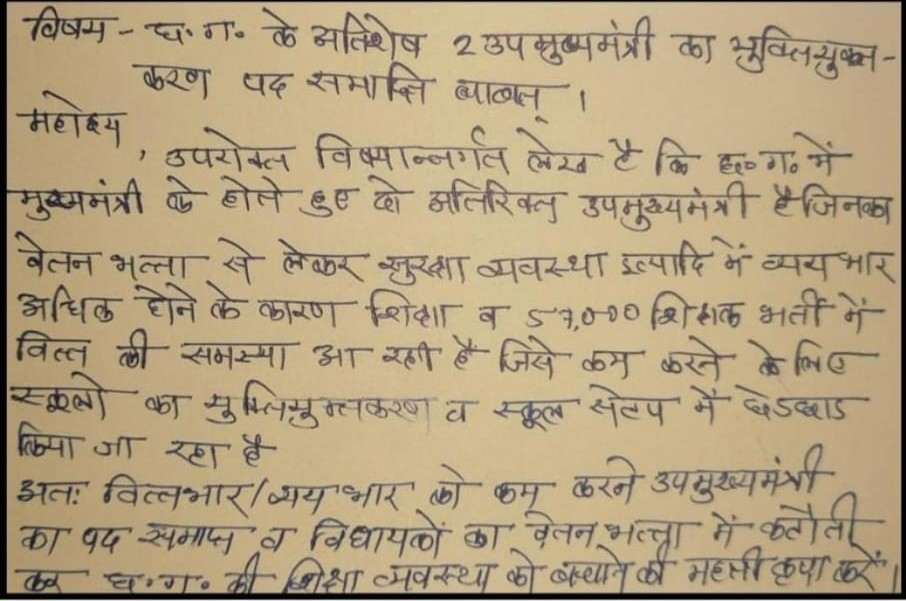 विषय - छ.ग. के अतिशेष 2 उपमुख्यमंत्री का युक्तियुक्त-
करण पद समाप्ति बाबत् ।
महोदय
, उपरोक्त विषयान्तर्गत लेख है कि छ.ग. में
मुख्यमंत्री के होते हुए दो अतिरिक्त उपमुख्यमंत्री है जिनका
वेतन भत्ता से लेकर सुरक्षा व्यवस्था इत्यादि में व्यय भार
अधिक होने के कारण शिक्षा व 57,000 शिक्षक भर्ती में
वित्त की समस्या आ रही है जिसे कम करने के लिए
स्कूलो का युक्तियुक्तकरण व स्कूल सेटप में छेडछाड
किया जा रहा है
अतः वित्तभार/व्यय भार को कम करने उपमुख्यमंत्री
का पद समाप्त व विधायकों का वेतन भत्ता में कटौती
कर छ.ग. की शिक्षा व्यवस्था को बचाने की महती कृपा करें।